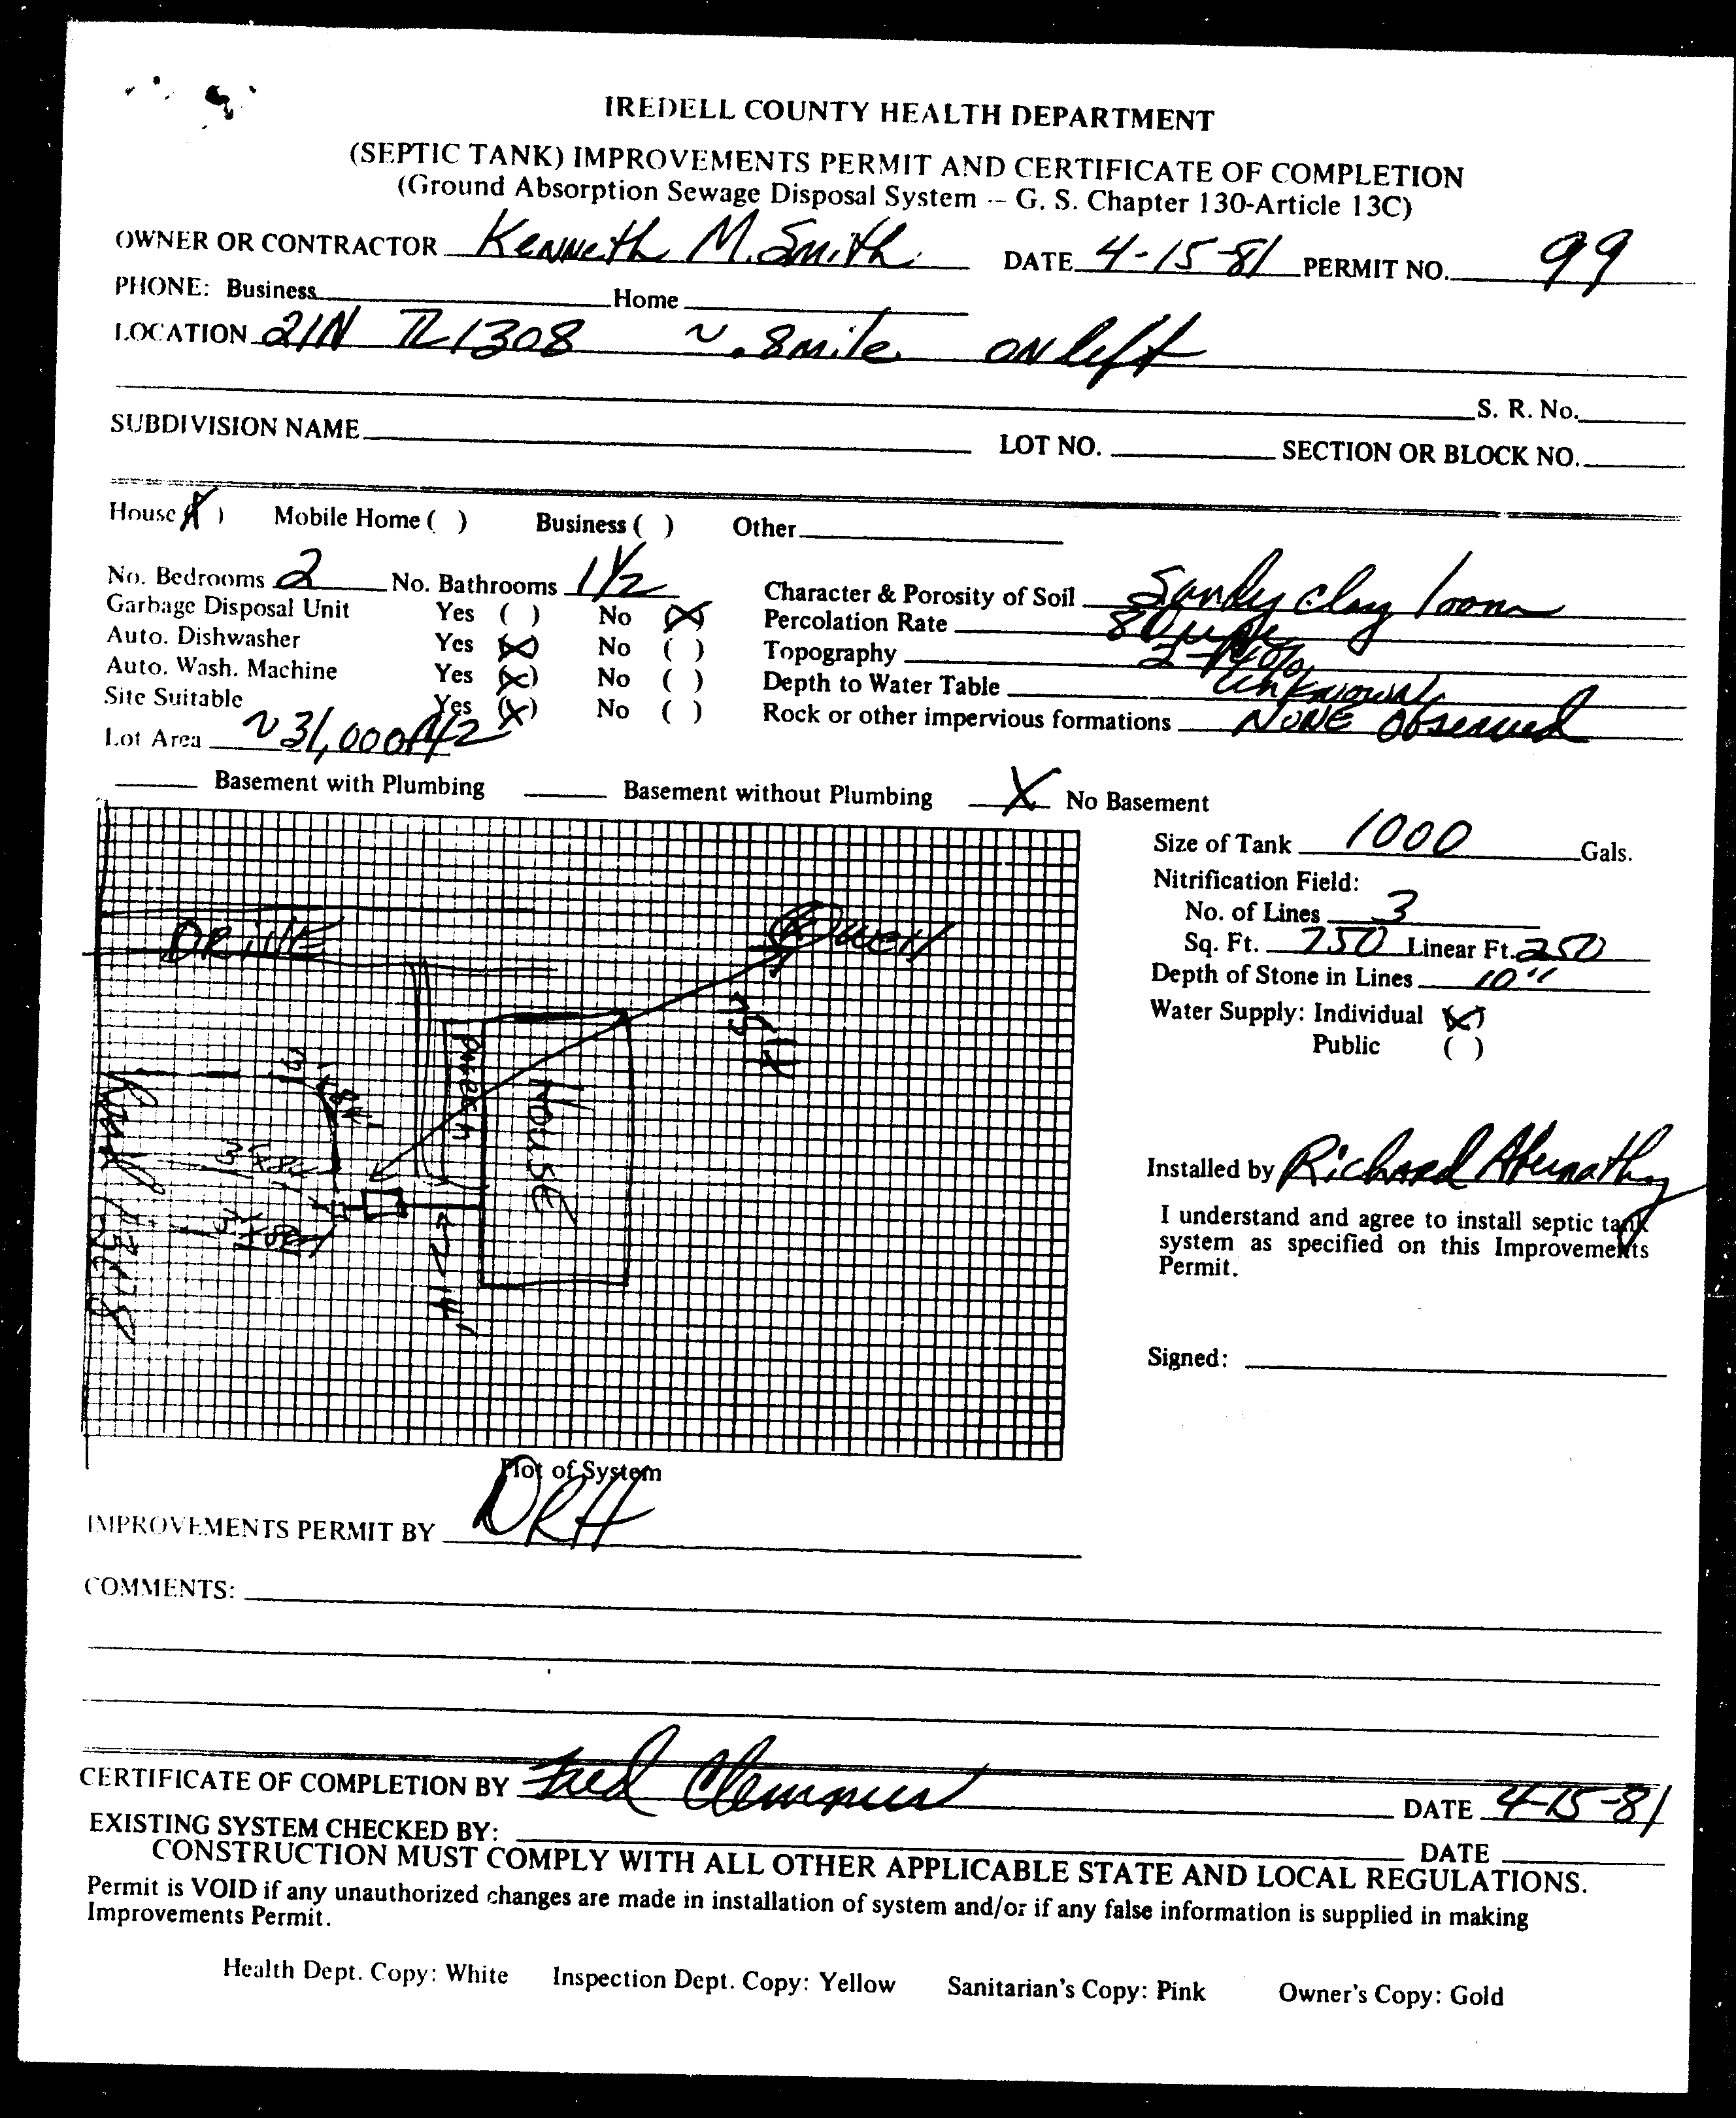 IREDELL COUNTY HEALTH DEPARTMENT
(SEPTIC TANK) IMPROVEMENTS PERMIT AND CERTIFICATE OF COMPLETION
(Ground Absorption Sewage Disposal System -- G. S. Chapter 130-Article 13C)
OWNER OR CONTRACTOR Kenneth M. Smith DATE 4-15-81 PERMIT NO. 99
PHONE: Business Home
LOCATION 21N TL 1308 ~ .8 mile on left
S. R. No.
SUBDIVISION NAME LOT NO. SECTION OR BLOCK NO.
House (X) Mobile Home ( ) Business ( ) Other
No. Bedrooms 2 No. Bathrooms 1 1/2 Character & Porosity of Soil Sandy clay loam
Garbage Disposal Unit Yes ( ) No (X) Percolation Rate 80
Auto. Dishwasher Yes (X) No ( ) Topography
Auto. Wash. Machine Yes (X) No ( ) Depth to Water Table Unknown
Site Suitable Yes (X) No ( ) Rock or other impervious formations NONE Observed
Lot Area ~31,000ft2
Basement with Plumbing Basement without Plumbing X No Basement
Size of Tank 1000 Gals.
Nitrification Field:
No. of Lines 3
Sq. Ft. 750 Linear Ft. 250
Depth of Stone in Lines 10"
Water Supply: Individual (X)
Public ( )
DRIVE
Well
Porch
HOUSE
14'
Road 1308
Installed by Richard Abernathy
I understand and agree to install septic tank
system as specified on this Improvements
Permit.
Signed:
Plot of System
IMPROVEMENTS PERMIT BY DRH
COMMENTS:
CERTIFICATE OF COMPLETION BY Fred Clemmer DATE 4-15-81
EXISTING SYSTEM CHECKED BY: DATE
CONSTRUCTION MUST COMPLY WITH ALL OTHER APPLICABLE STATE AND LOCAL REGULATIONS.
Permit is VOID if any unauthorized changes are made in installation of system and/or if any false information is supplied in making
Improvements Permit.
Health Dept. Copy: White Inspection Dept. Copy: Yellow Sanitarian's Copy: Pink Owner's Copy: Gold